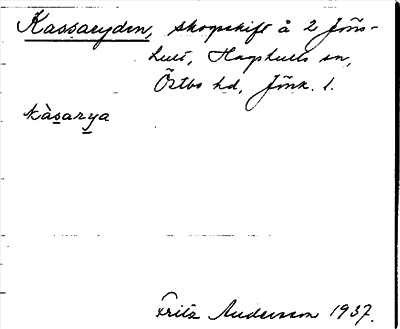 Kassaryden, skogskift å 2 Jöns-
hult, Hagshults sn,
Östbo hd, Jönk. l.
kàsarya
Fritz Andersson 1937.